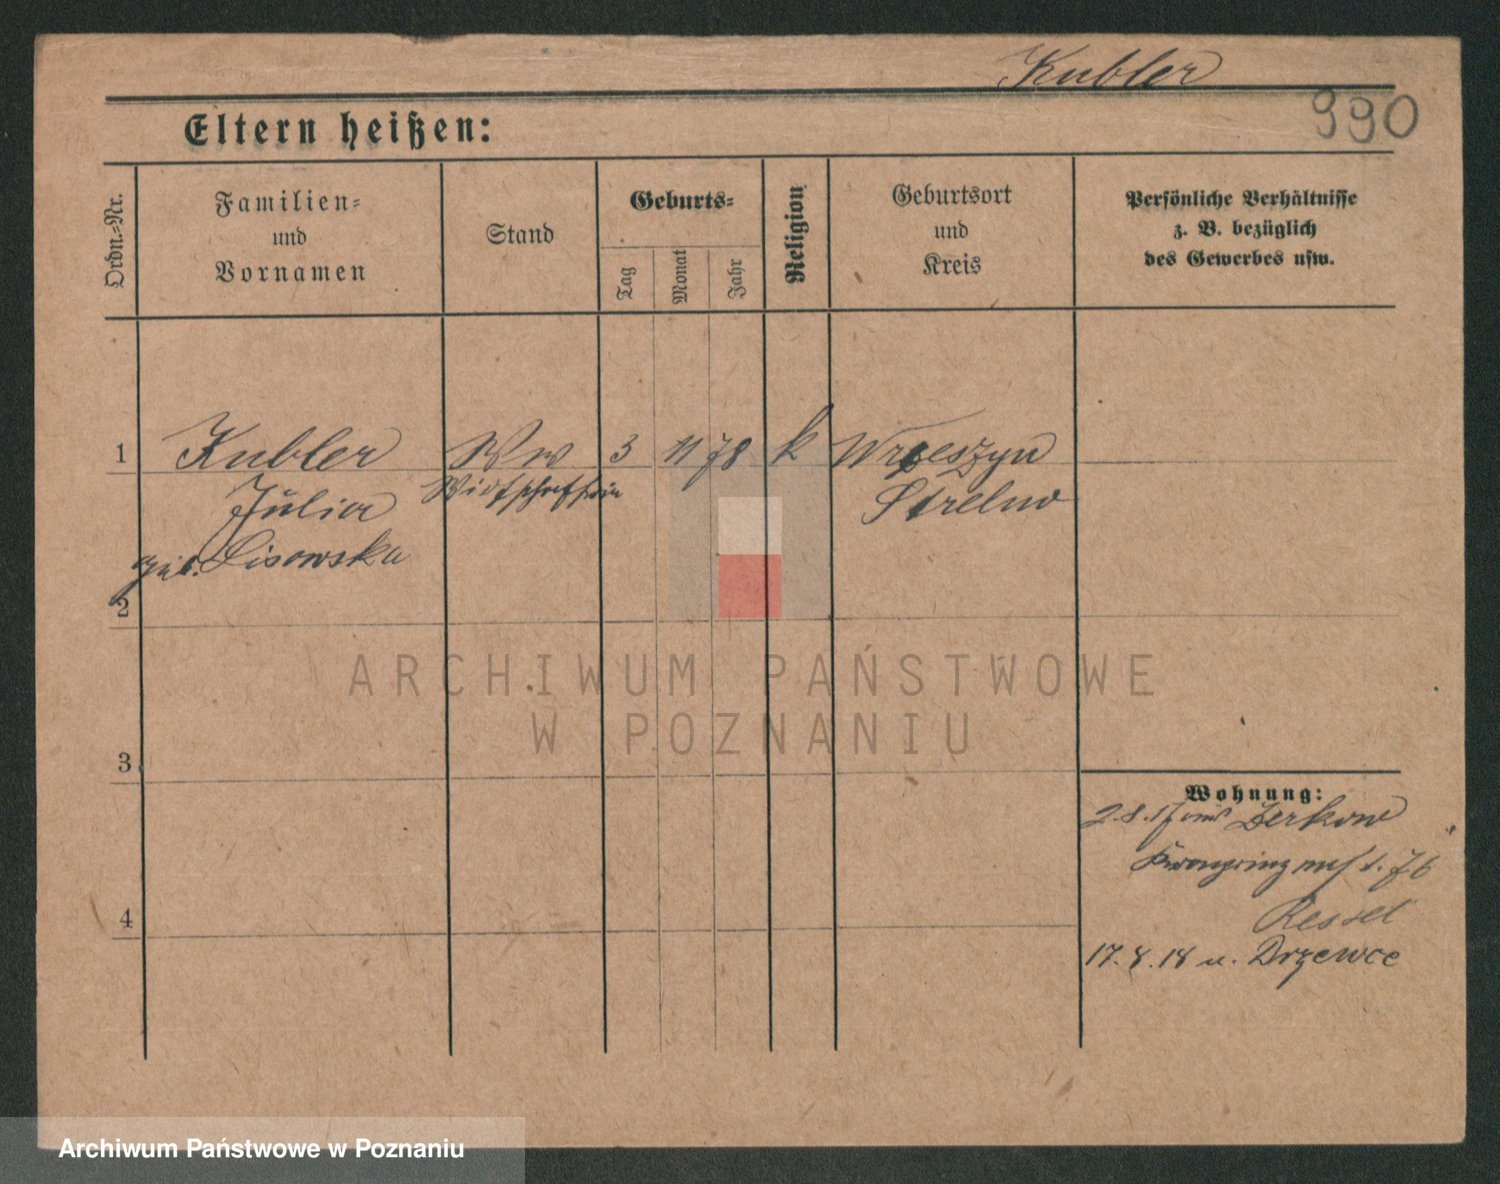 Kubler
990
Eltern heißen:
Ordn.-Nr.
Familien-
und
Vornamen
Stand
Geburts-
Tag
Monat
Jahr
Religion
Geburtsort
und
Kreis
Persönliche Verhältnisse
z. B. bezüglich
des Gewerbes usw.
1 Kubler Ww 3 11 78 k Wrzeszyn
Julia Wirtschafterin Strelno
geb. Lisowska
2
ARCHIWUM PAŃSTWOWE
W POZNANIU
3
Wohnung:
2.8.17 aus Zerkow
Kronprinzenst. 76
Ressel
4
17.8.18 n. Drzewce
Archiwum Państwowe w Poznaniu